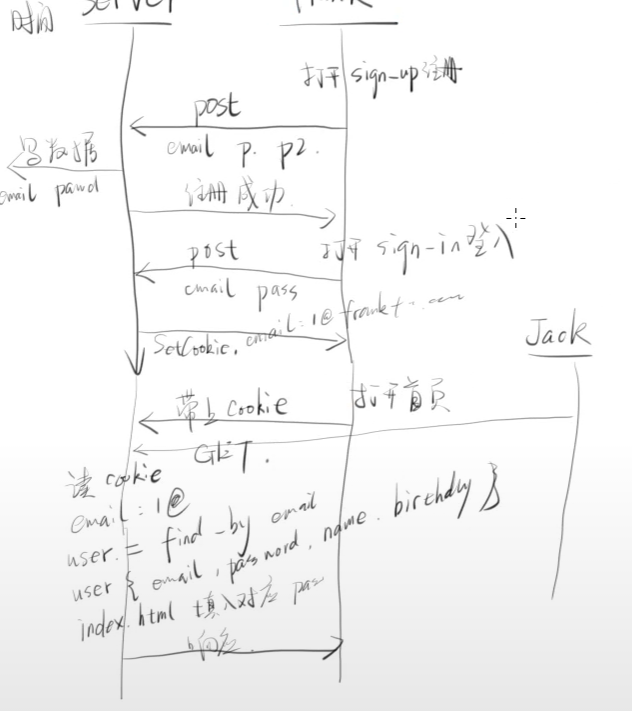 时间 Server
打开 sign-up 注册
post
email p. p2.
写数据
email
注册成功
打开 sign-in 登入
post
email pass
SetCookie, email: 1@frank
Jack
打开首页
带上 cookie
GET.
读 cookie
email: 1@
user = find-by email
user { email, password, name. birthday }
index.html 填入对应 pas
响应